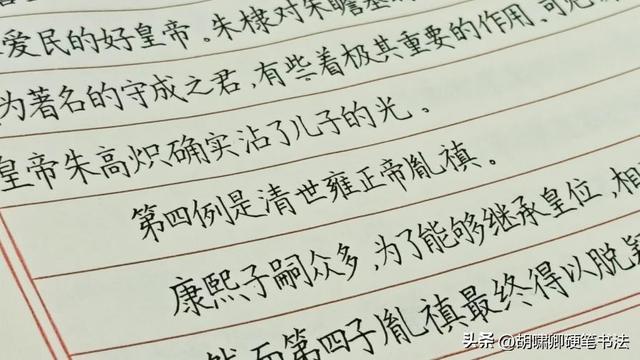 爱民的好皇帝。朱棣对朱瞻基
为著名的守成之君,有些着极其重要的作用,可见
皇帝朱高炽确实沾了儿子的光。
第四例是清世雍正帝胤禛。
康熙子嗣众多,为了能够继承皇位,相
然而第四子胤禛最终得以脱颖
头条 @胡啸卿硬笔书法